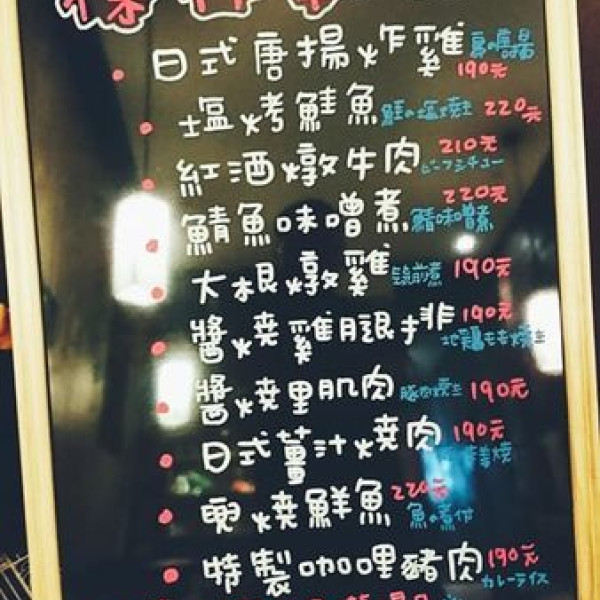 日式唐揚炸雞 鳥の唐揚 190元
塩烤鮭魚 鮭の塩焼き 220元
紅酒燉牛肉 210元 ビーフシチュー
鯖魚味噌煮 220元 鯖味噌煮
大根燉雞 190元
醬燒雞腿排 190元 地鶏もも焼き
醬燒里肌肉 豚肉焼き 190元
日式薑汁燒肉 190元
燒鮮魚 220元 魚の煮付
特製咖哩豬肉 190元 カレーライス